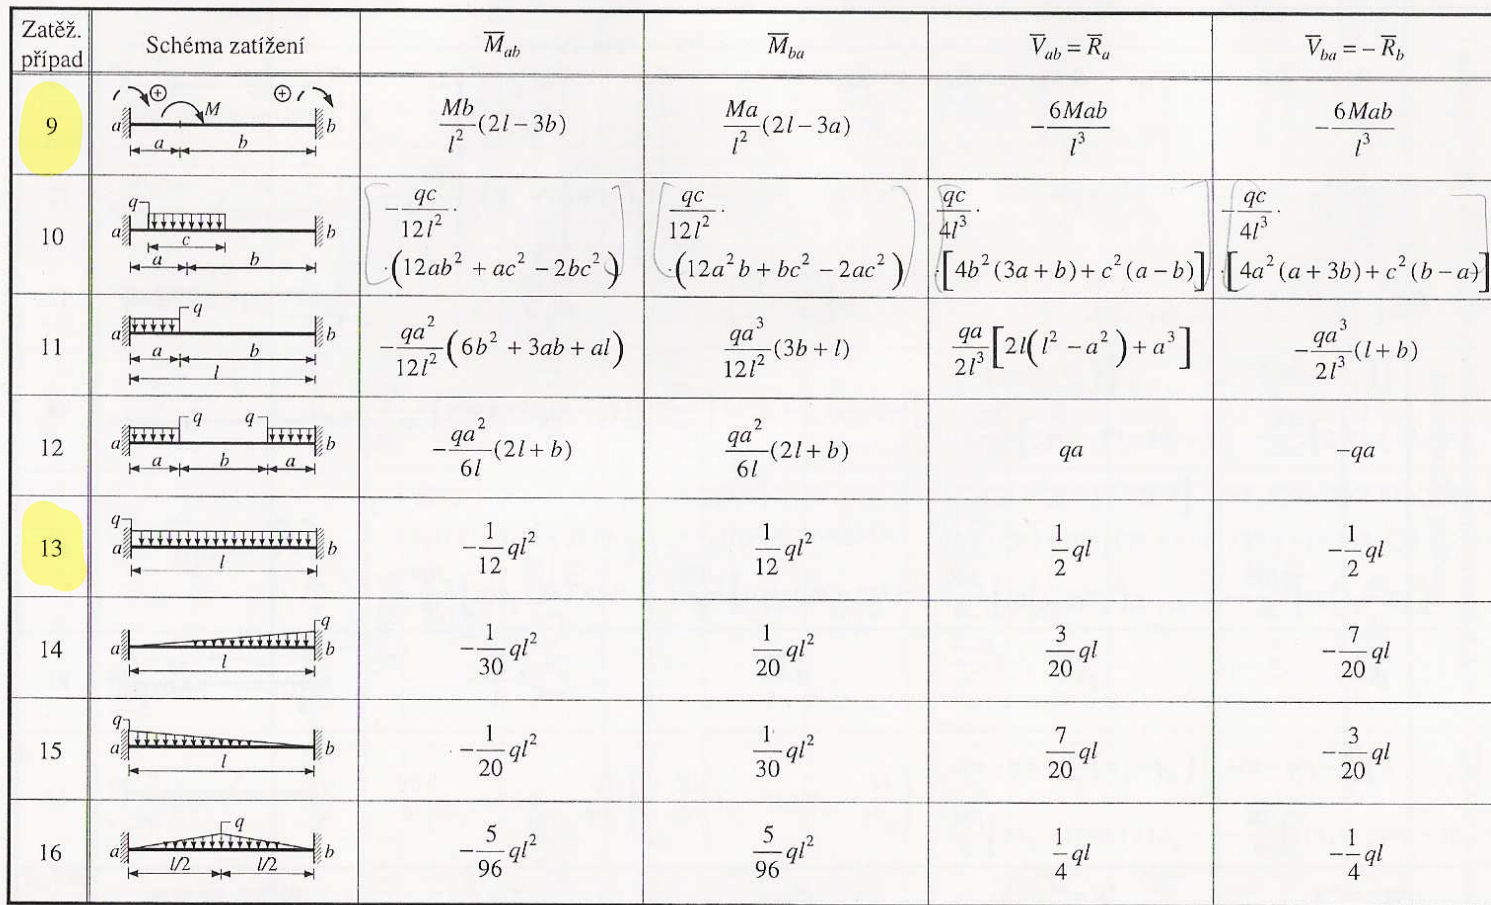 Zatěž. případ | Schéma zatížení | M̅_ab | M̅_ba | V̅_ab = R̅_a | V̅_ba = − R̅_b
9 | a ⊕ M ⊕ b a b | Mb/l² (2l − 3b) | Ma/l² (2l − 3a) | − 6Mab/l³ | − 6Mab/l³
10 | q a b c a b | − qc/12l² · · (12ab² + ac² − 2bc²) | qc/12l² · · (12a²b + bc² − 2ac²) | qc/4l³ · · [4b² (3a + b) + c² (a − b)] | − qc/4l³ · · [4a² (a + 3b) + c² (b − a)]
11 | q a b a b l | − qa²/12l² (6b² + 3ab + al) | qa³/12l² (3b + l) | qa/2l³ [2l(l² − a²) + a³] | − qa³/2l³ (l + b)
12 | q q a b a b a | − qa²/6l (2l + b) | qa²/6l (2l + b) | qa | −qa
13 | q a b l | − 1/12 ql² | 1/12 ql² | 1/2 ql | − 1/2 ql
14 | q a b l | − 1/30 ql² | 1/20 ql² | 3/20 ql | − 7/20 ql
15 | q a b l | − 1/20 ql² | 1/30 ql² | 7/20 ql | − 3/20 ql
16 | q a b l/2 l/2 | − 5/96 ql² | 5/96 ql² | 1/4 ql | − 1/4 ql